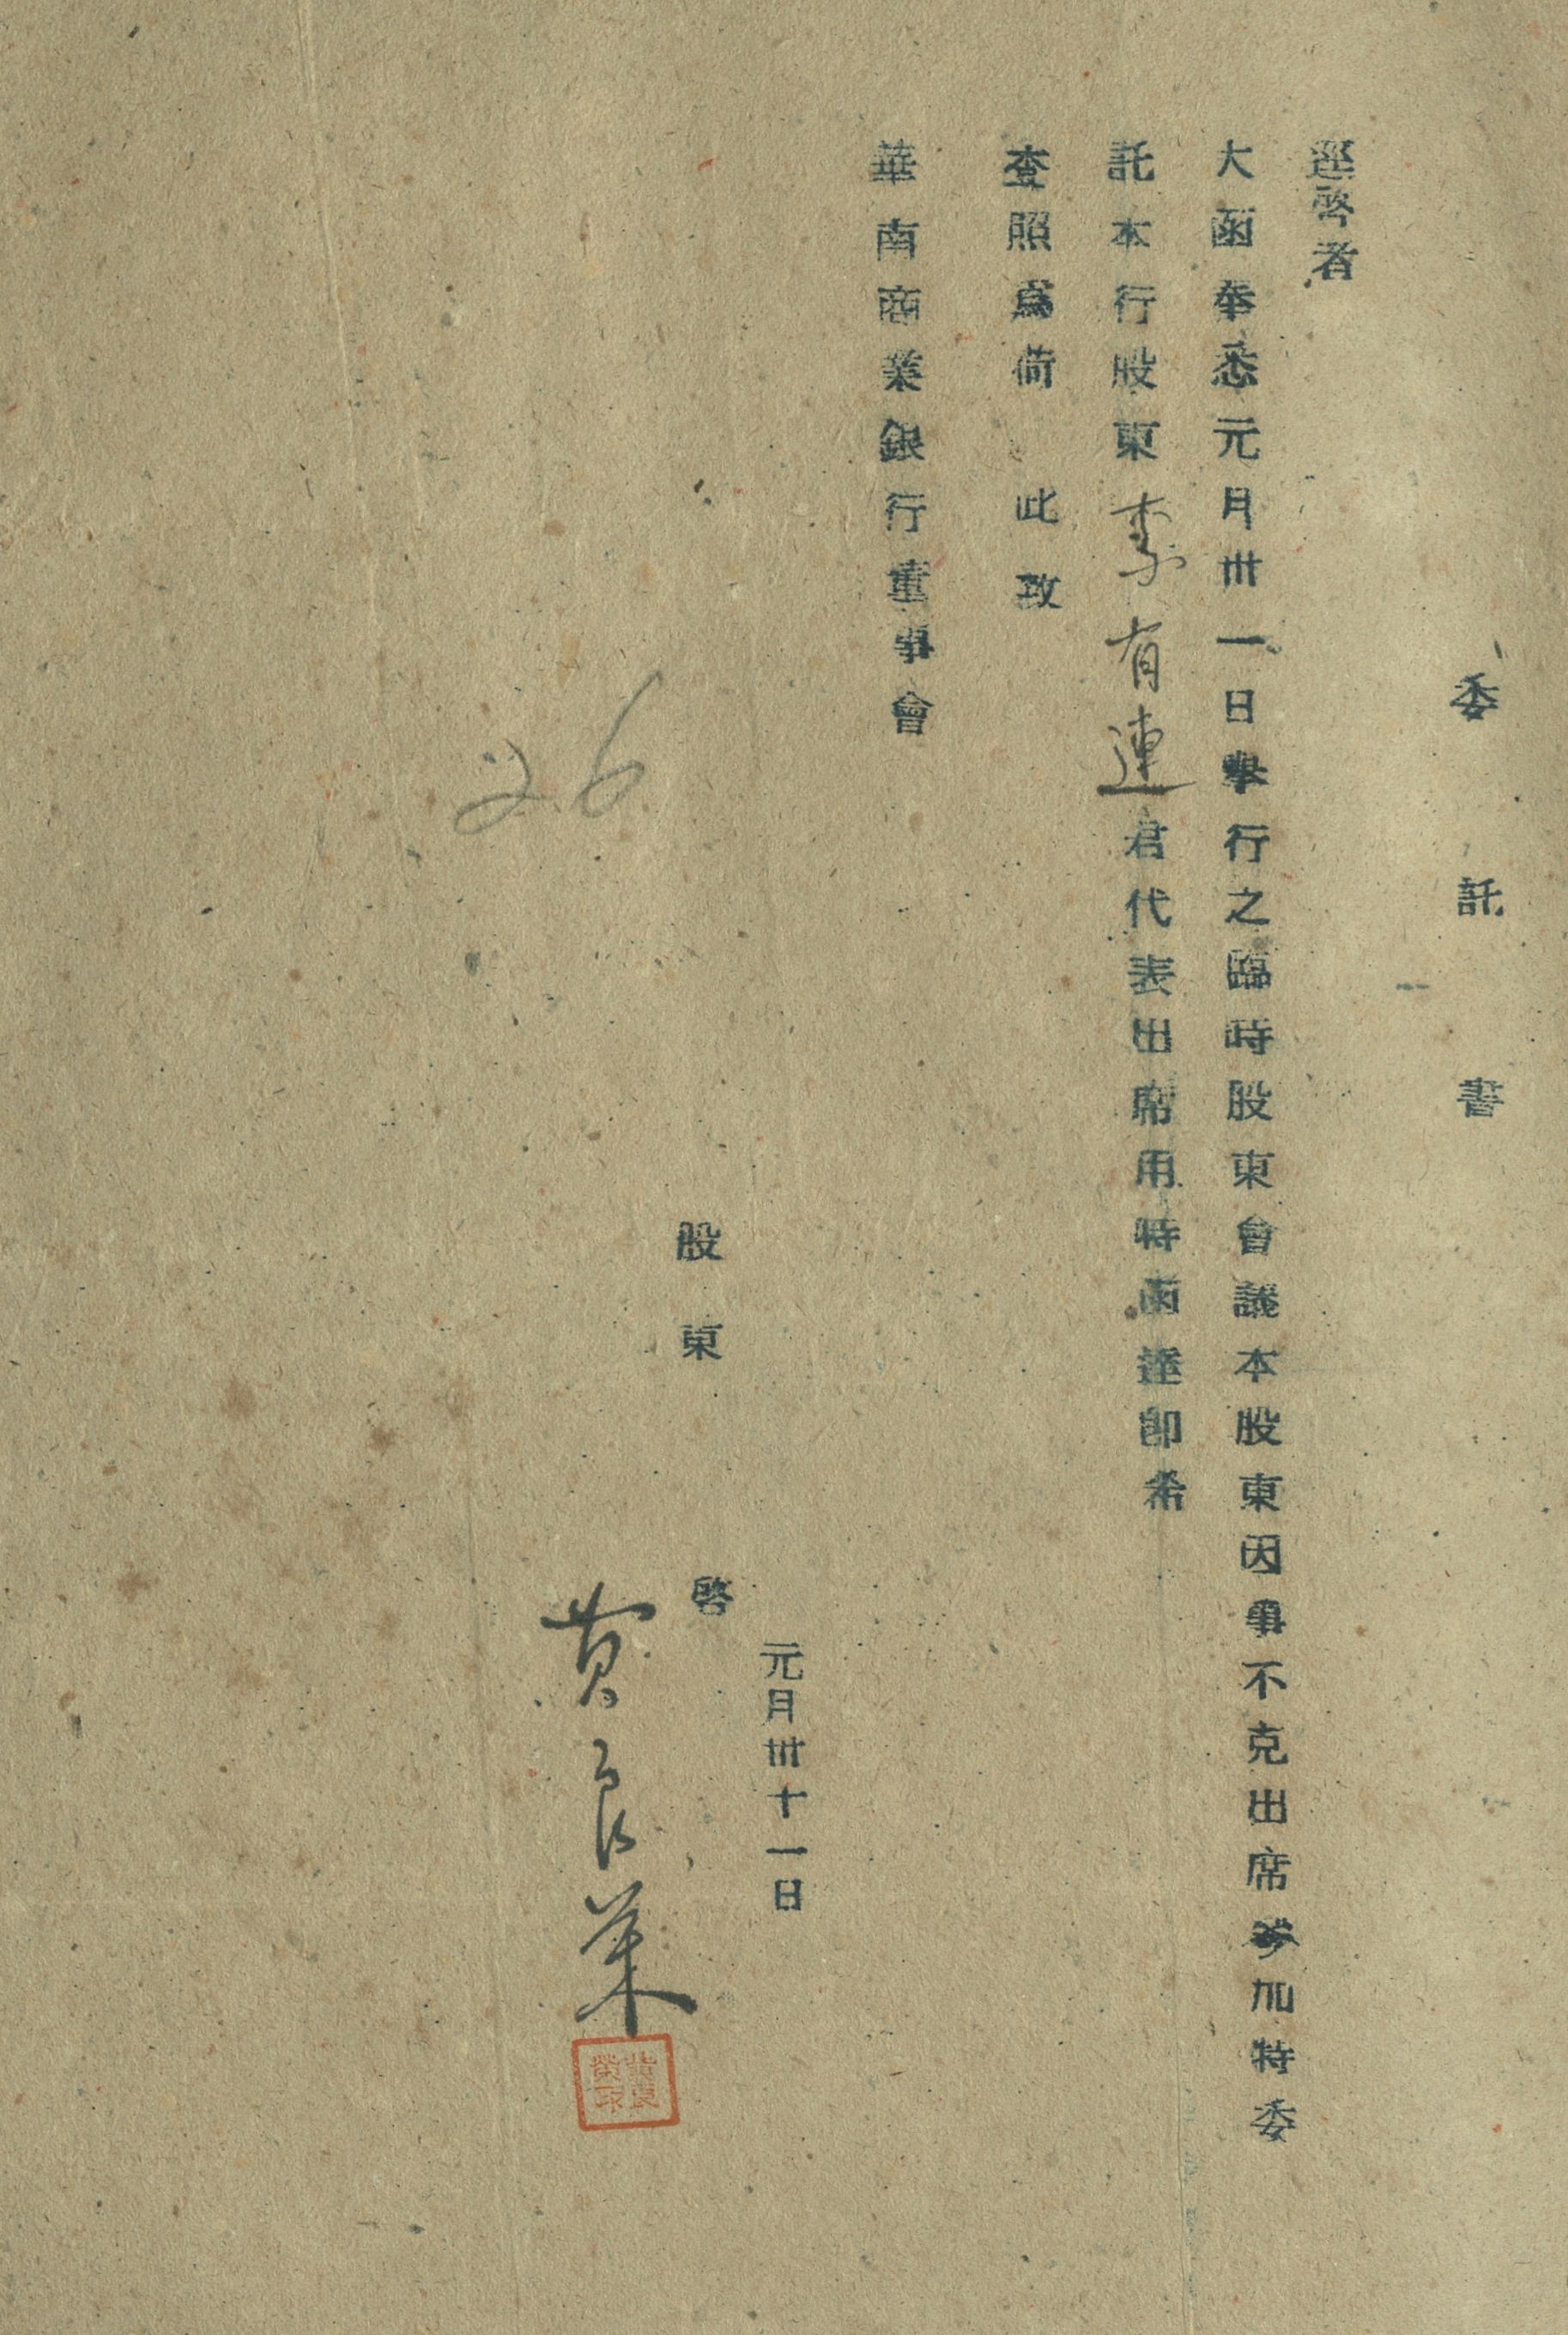 委託書
逕啓者
大函奉悉元月卅一日舉行之臨時股東會議本股東因事不克出席參加特委
託本行股東李有連君代表出席用特函達卽希
查照爲荷 此致
華南商業銀行董事會
元月卅十一日
股東 啓
黃良
26